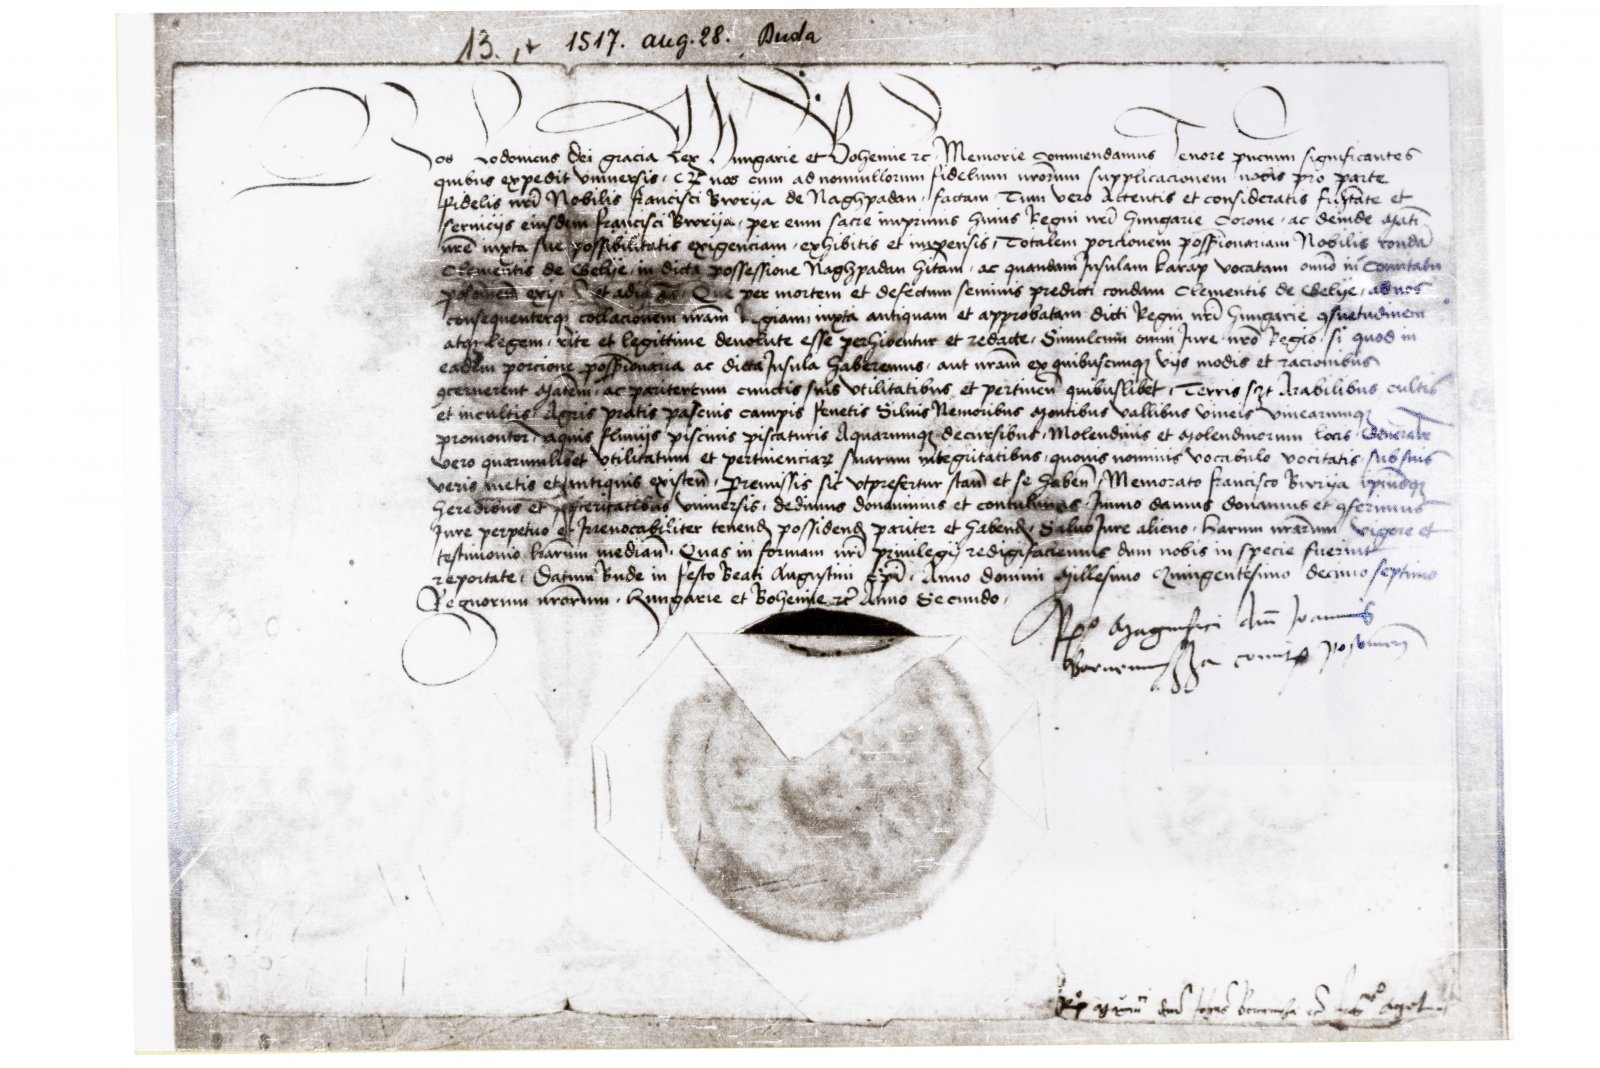 13. 1517. aug. 28. Buda
Nos Lodovicus dei gracia Rex Hungarie et Bohemie rc. Memorie commendamus Tenore pñcium significantes
quibus expedit universis. Q nos cum ad nonnullorum fidelium nrorum supplicacionem nobis pro parte
fidelis nrĩ Nobilis francisci Bworya de Naghpadan factam. Tum vero Attentis et consideratis fid̃tate et
servicijs eiusdem francisci Bworya per eum sacre inprimis huius Regni nrĩ Hungarie Corone, ac deinde Mati
nrẽ iuxta sue possibilitatis exigenciam exhibitis et inpensis. Totalem porcionem possessionariam Nobilis condã
Clementis de in dicta possessione Naghpadan hitam, ac quandam Insulam karap vocatam omnĩo in Comitatu
exis. et adia Que per mortem et defectum seminis predicti condam Clementis de ad nos
consequenterq collacionem nrãm Regiam iuxta antiquam et approbatam dicti Regni nrĩ Hungarie qsuetudinem
atq legem, rite et legittime devolute esse perhibentur et redacte, Simulcum omni Jure nrõ Regio si quod in
eadem porcione possessionaria ac dicta Insula haberemus, aut nrãm ex quibuscumq vijs modis et racionibus
qcernerent Matem, ac pariter cum cunctis suis utilitatibus et pertinen̄ quibuslibet, Terris scꝫ Arabilibus cultis
et incultis Agris pratis pascuis campis fenetis Silvis Nemoribus Montibus vallibus vineis vinearumq
promontor. aquis fluvijs piscinis piscaturis Aquarumq decursibus Molendinis et Molendinorum locis Generalr
vero quarumlibet utilitatum et pertinenciarꝫ suarum integritatibus, quovis nominis vocabulo vocitatis, sub suis
veris metis et antiquis existen̄, Premissis sic ut prefertur stan̄ et se haben̄, Memorato francisco Bworya ipsiusq
heredibus et posteritatibus universis, dedimus donavimus et contulimus, Immo damus donamus et qferimus
Jure perpetuo et Irrevocabiliter tenend possidend pariter et habend, Salvo Jure alieno. Harum nrarum vigore et
testimonio lrarum median̄. Quas in formam nrĩ privilegij redigi faciemus dum nobis in specie fuerint
reportate. Datum Bude in festo Beati Augustini Epĩ, Anno domini Millesimo Quingentesimo decimo septimo
Regnorum nrorum, Hungarie et Bohemie rc Anno Secundo.
Magnifici dñi Ioannis
comitis